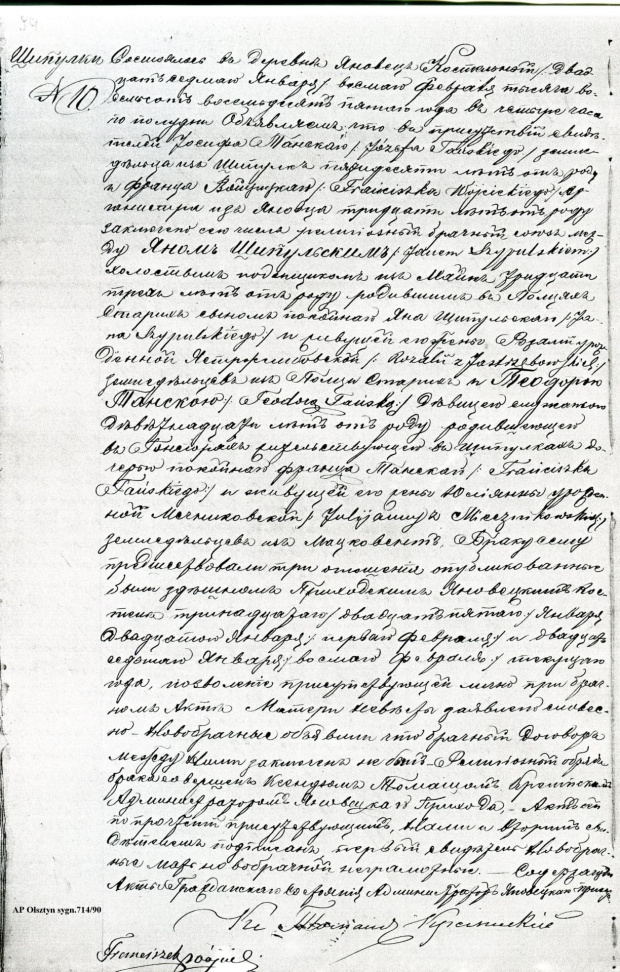 Шипулки Состоялось въ деревнѣ Яновецъ Костельный / Двад-
№ 10 цать седмаго Января / восмаго Февраля тысяча во-
семьсотъ восемьдесятъ пятаго года въ четыре часа
по полудни Объявляемъ, что въ присутствіи свидѣ-
телей Іосифа Таńскаго /: Józefa Tańskiego :/ земле-
дѣльца изъ Шипулк пятидесяти лѣтъ отъ роду
и Франца Войцицкаго /: Franciszka Wojcickiego :/ Ор-
ганистра изъ Яновца тридцать лѣтъ отъ роду
заключенъ сего числа религіозный брачный союзъ меж-
ду Яномъ Шипульскимъ /: Janem Szypulskiem :/
холостымъ поденщикомъ изъ тридцати
трехъ лѣтъ отъ роду родившимся въ
Старыхъ сыномъ покойнаго Яна Шипульскаго /: Ja-
na Szypulskiego :/ и живущей его жены Розаліи урож-
денной Ястржембовской /: Rozalii z Jastrzębowskich :/
земледѣльцевъ изъ Старыхъ и Теодорою
Танскою /: Teodorą Tańską :/ Дѣвицею
Девятнадцати лѣтъ отъ роду родившеюся
въ жительствующей въ Шипулкахъ до-
черью покойнаго Франца Танскаго /: Franciszka
Tańskiego :/ и живущей его жены Юліянны урожден-
ной Мечниковской /: Julijanny z Miecznikowskich :/
земледѣльцевъ изъ Браку сему
предшествовали три оглашенія опубликованные
были здѣшномъ Приходскимъ Яновецкимъ Кос-
телѣ тринадцатаго / двадцать пятаго / Января
Двадцатого Января / перваго Февраля / и двадцать
седмаго Января / восмаго Февраля / текущаго
года, позволеніе присутствующей лично при брач-
номъ Актѣ Матери невѣсты заявлено словес-
но – Новобрачные объявили что брачный Договоръ
между ними заключенъ не былъ – Религіозный обрядъ
брака совершенъ Ксендзомъ Томашомъ
Администраторомъ Яновецкаго Прихода, – Актъ сей
по прочтеніи присутствующимъ, Нами и вторымъ сви-
дѣтелемъ подписанъ первый свидѣтель Новобрач-
ные мать новобрачной неграмотные. – Содержащій
Акты Гражданскаго Состоянія Администраторъ Яновецкаго прихода
AP Olsztyn sygn.714/90
Кс. Томашъ
Franciszek Wójcicki